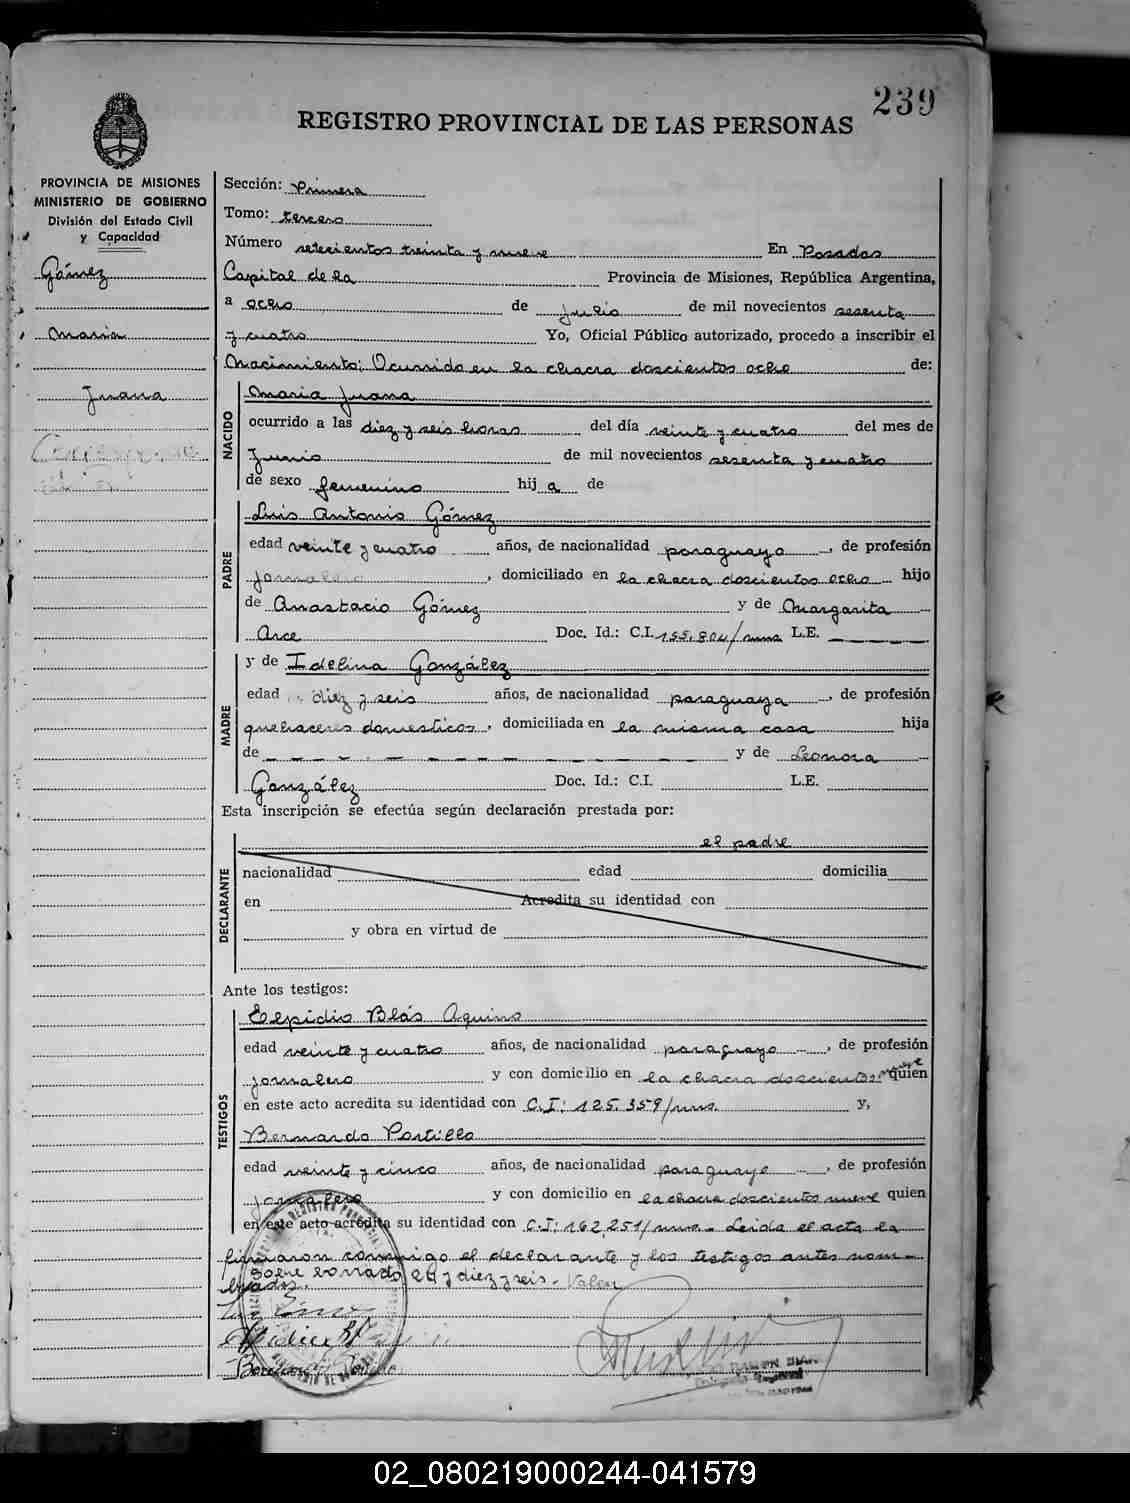 239
REGISTRO PROVINCIAL DE LAS PERSONAS
PROVINCIA DE MISIONES
MINISTERIO DE GOBIERNO
División del Estado Civil
y Capacidad
Gómez
Maria
Juana
Sección: Primera
Tomo: tercero
Número setecientos treinta y nueve En Posadas
Capital de la Provincia de Misiones, República Argentina,
a ocho de julio de mil novecientos sesenta
y cuatro Yo, Oficial Público autorizado, procedo a inscribir el
Nacimiento: Ocurrido en la chacra doscientos ocho de:
NACIDO
Maria Juana
ocurrido a las diez y seis horas del día veinte y cuatro del mes de
Junio de mil novecientos sesenta y cuatro
de sexo femenino hij a de
PADRE
Luis Antonio Gómez
edad veinte y cuatro años, de nacionalidad paraguayo, de profesión
jornalero, domiciliado en la chacra doscientos ocho hijo
de Anastacio Gómez y de Margarita
Arce Doc. Id.: C.I. 155.804/mns L.E.
MADRE
y de Idelina González
edad diez y seis años, de nacionalidad paraguaya, de profesión
quehaceres domesticos, domiciliada en la misma casa hija
de y de Leonora
González Doc. Id.: C.I. L.E.
Esta inscripción se efectúa según declaración prestada por:
DECLARANTE
el padre
nacionalidad edad domicilia
en Acredita su identidad con
y obra en virtud de
Ante los testigos:
TESTIGOS
Elpidio Blás Aquino
edad veinte y cuatro años, de nacionalidad paraguayo, de profesión
jornalero y con domicilio en la chacra doscientos nueve quien
en este acto acredita su identidad con C.I: 125.359/mns. y,
Bernardo Portillo
edad veinte y cinco años, de nacionalidad paraguayo, de profesión
jornalero y con domicilio en la chacra doscientos nueve quien
en este acto acredita su identidad con C.I: 162.251/mns. Leida el acta la
firmaron conmigo el declarante y los testigos antes nom-
brados.
Sobre borrado: y diez y seis. Valen
02_080219000244-041579